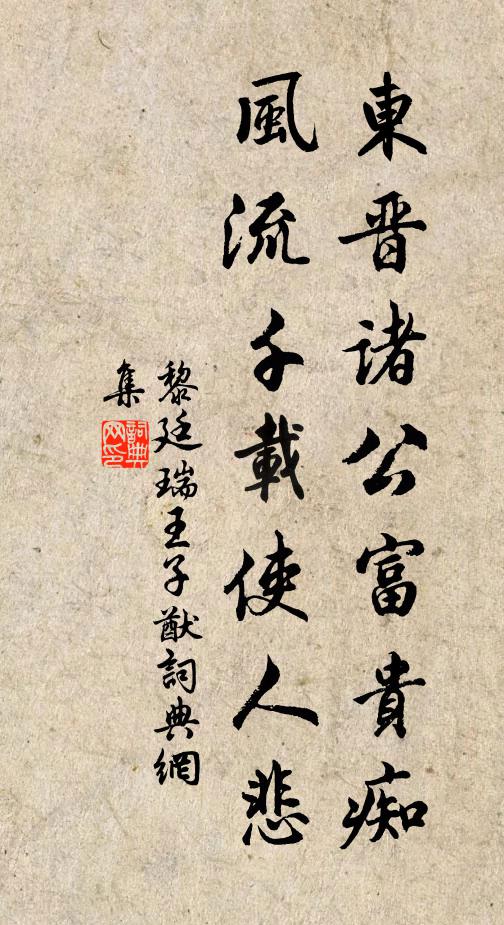 東晋诸公富貴痴
風流千載使人悲
黎廷瑞王子猷詞典網
集
詞典
网印